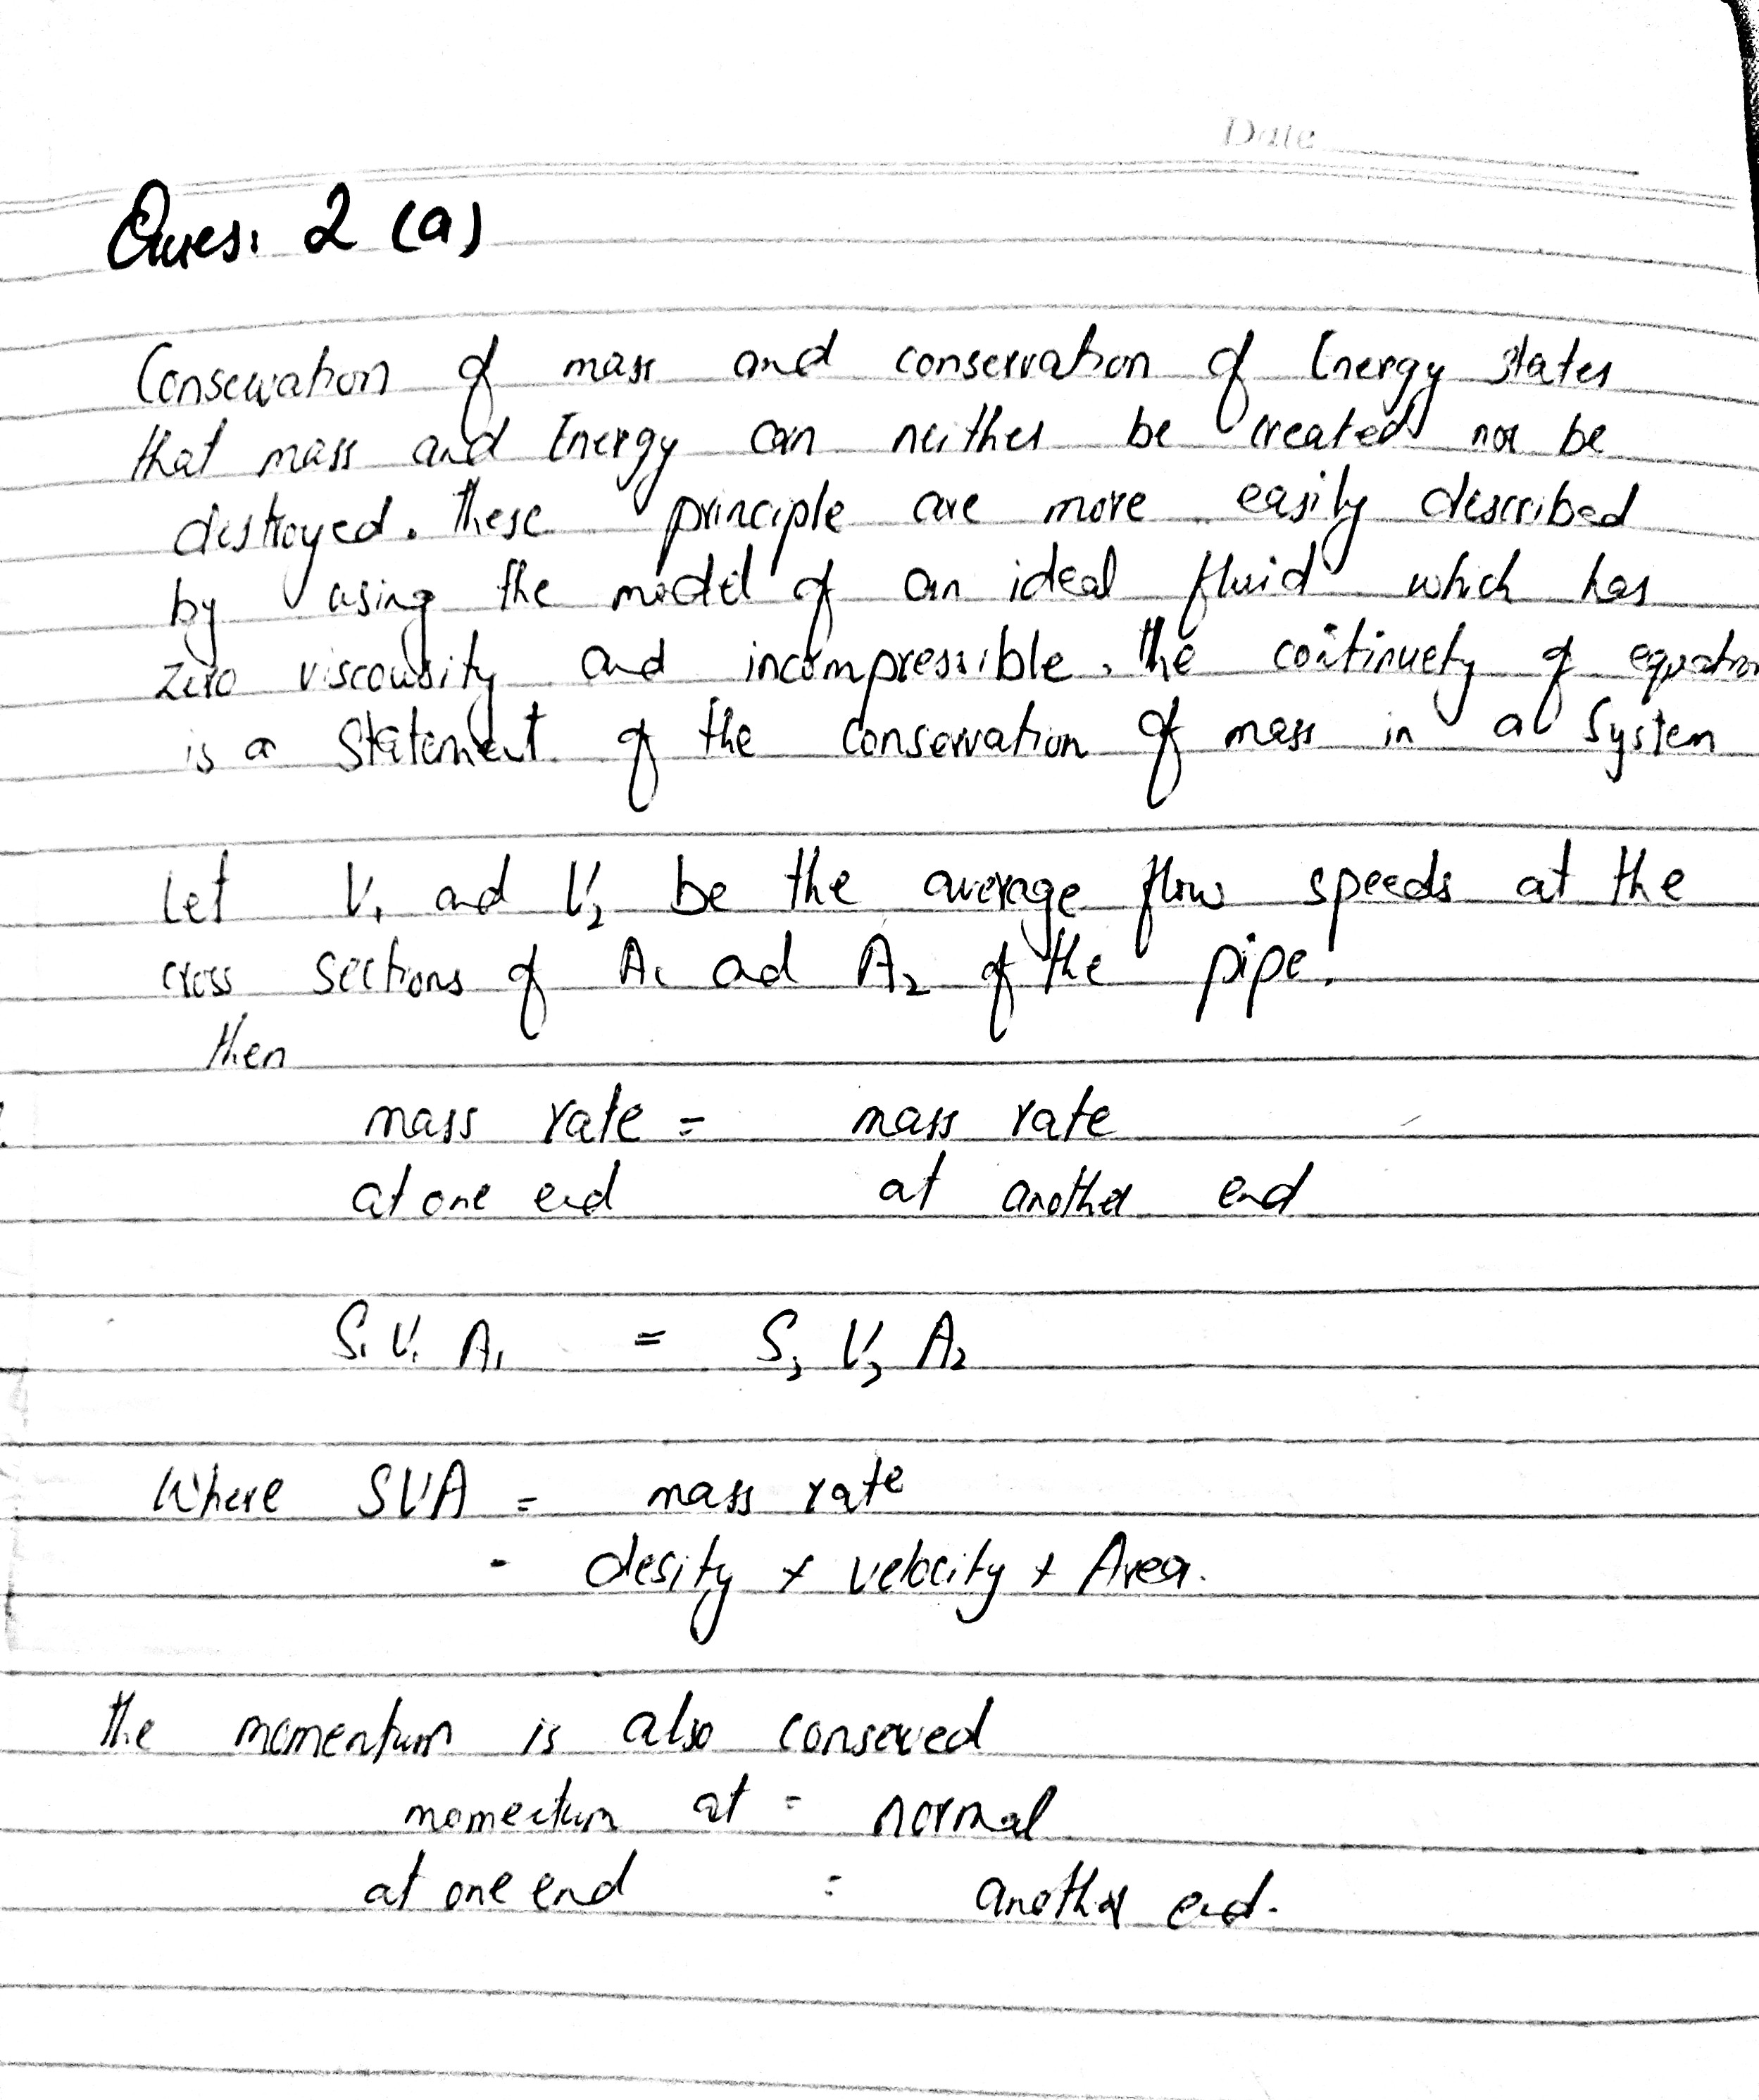 Date
Ques: 2 (a)
Conservation of mass and conservation of Energy states
that mass and Energy can neither be created nor be
destroyed. These principle are more easily described
by using the model of an ideal fluid which has
zero viscousity and incompressible. The continuety of equation
is a Statement of the conservation of mass in a System
Let V1 and V2 be the average flow speeds at the
cross sections of A1 ad A2 of the pipe.
then
mass rate = mass rate
at one end at another end
S1 V1 A1 = S2 V2 A2
Where SVA = mass rate
- desity x velocity x Area.
The momentum is also conserved
momentum at = normal
at one end = another end.